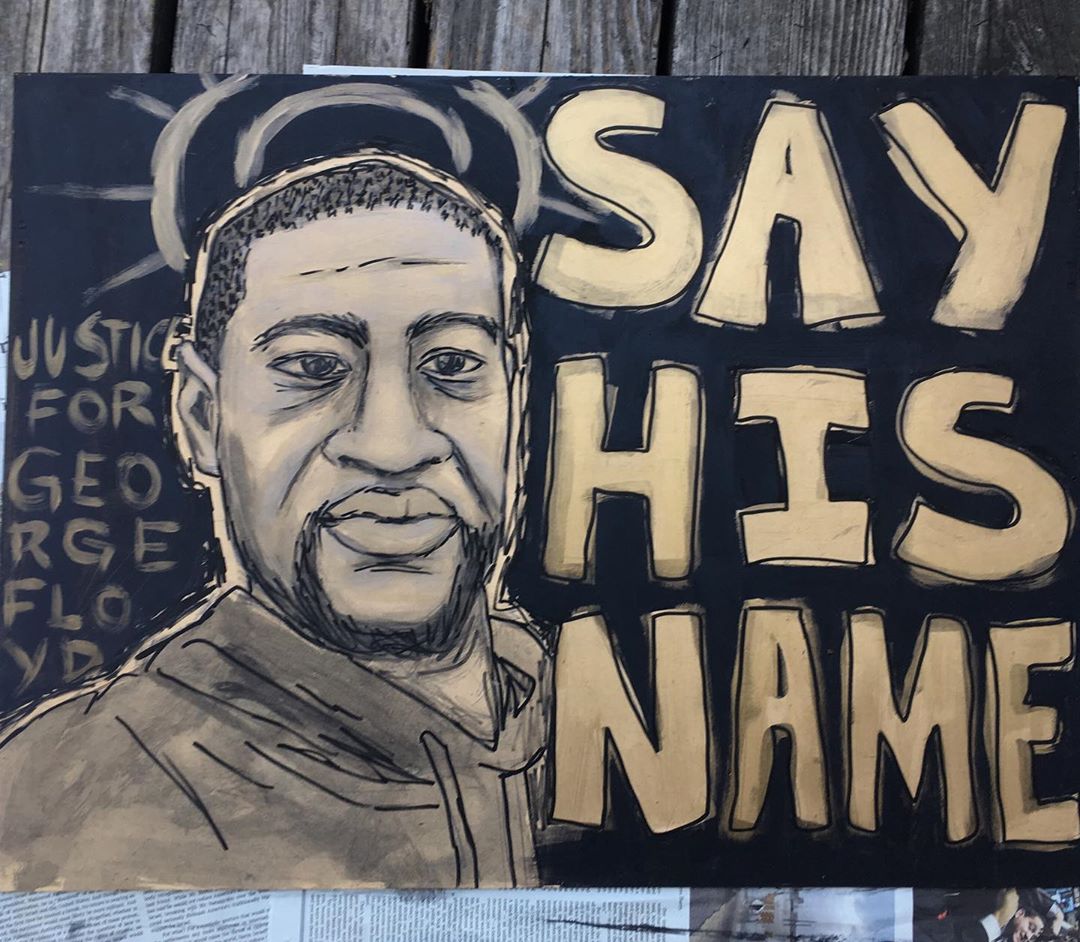 JUSTICE
FOR
GEO
RGE
FLO
YD
SAY
HIS
NAME